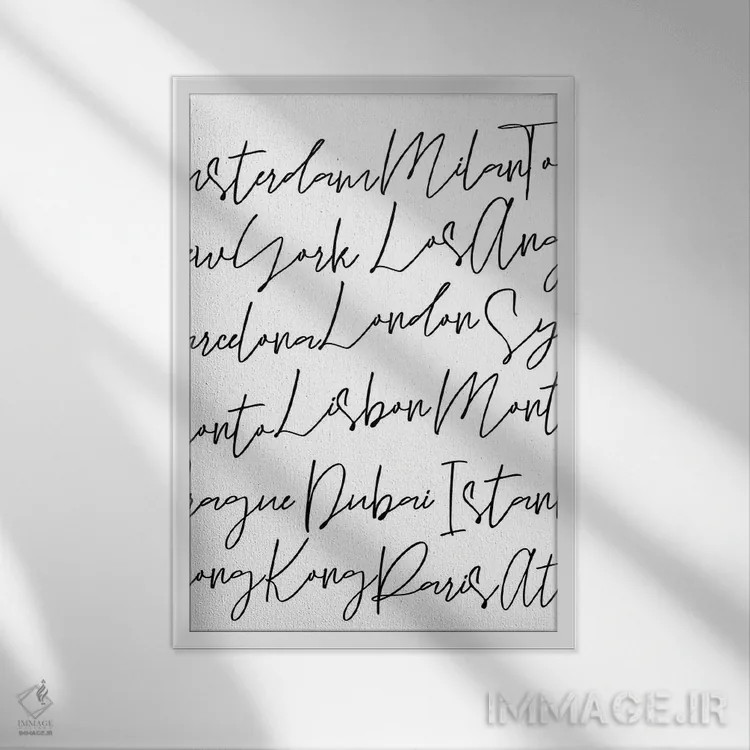 msterdam Milan To
ew York Los Ang
arcelona London Sy
onto Lisbon Mont
rague Dubai Istan
ong Kong Paris At
IMMAGE
IMMAGE.IR
IMMAGE.IR